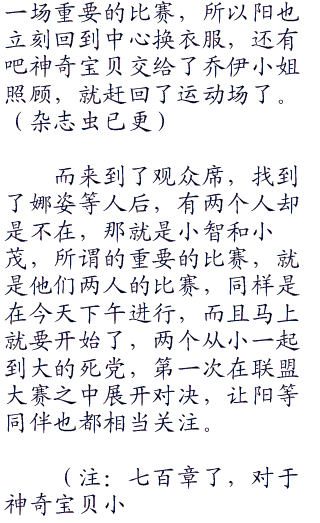 一场重要的比赛，所以阳也
立刻回到中心换衣服，还有
吧神奇宝贝交给了乔伊小姐
照顾，就赶回了运动场了。
（杂志虫已更）
　　而来到了观众席，找到
了娜姿等人后，有两个人却
是不在，那就是小智和小
茂，所谓的重要的比赛，就
是他们两人的比赛，同样是
在今天下午进行，而且马上
就要开始了，两个从小一起
到大的死党，第一次在联盟
大赛之中展开对决，让阳等
同伴也都相当关注。
　　（注：七百章了，对于
神奇宝贝小